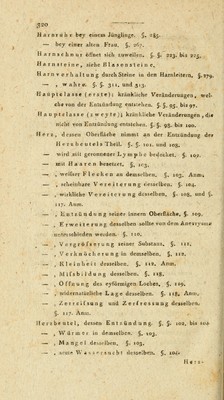 320
Harnruhr bey einem Jünglinge. §. 285.
— bey einer alten Frau. §. 267.
Harnschnur öffnet sich zuweilen. §. §. 223, bis 225.
Harnsteine, siehe Blasensteine.
Harnverhaltung durch Steine in den Harnleitern. §. 279.
— , wahre. §. §. 311, und 313.
Hauptklasse (erste); kränkliche Veränderungen, wel-
che von der Entzündung entstehen. §. §. 95, bis 97.
Hauptklasse (zweyte); kränkliche Veränderungen, die
nicht von Entzündung entstehen. §. §. 95, bis 100.
Herz, dessen Oberfläche nimmt an der Entzündung der
Herzbeutels Theil. §. §. 101, und 109.
— wird mit geronnener Lymphe bedecket. §. 102.
— mit Haaren besetzet, §. 103.
— , weißer Flecken an demselben, §. 103. Anm,
— , scheinbare Vereiterung desselben. §. 102.
— , wirkliche Vereiterung desselben, §. 109, und §.
117. Anm.
— , Entzündung seiner innern Oberfläche, §. 109.
— , Erweiterung desselben sollte von dem Aneurysma
unterschieden werden. §. 110,
— , Vergröfserung seiner Substanz, §. 111,
— , Verknöcherung in demselben, §. 112,
— , Kleinheit desselben. §. 112, Anm,
— , Mifsbildung desselben, §. 118,
— , Öffnung des eyförmigen Loches, §. 119,
— , widernatürliche Lage desselben. §. 118, Anm,
— , Zerreifsung und Zerfressung desselben.
§. 117. Anm.
Herzbeutel, dessen Entzündung. §. §. 101, bis 102
— , Würmer in demselben. §. 103.
— , Mangel desselben, §. 103.
— , erste Wassersucht desselben, §. 104.
Herz-